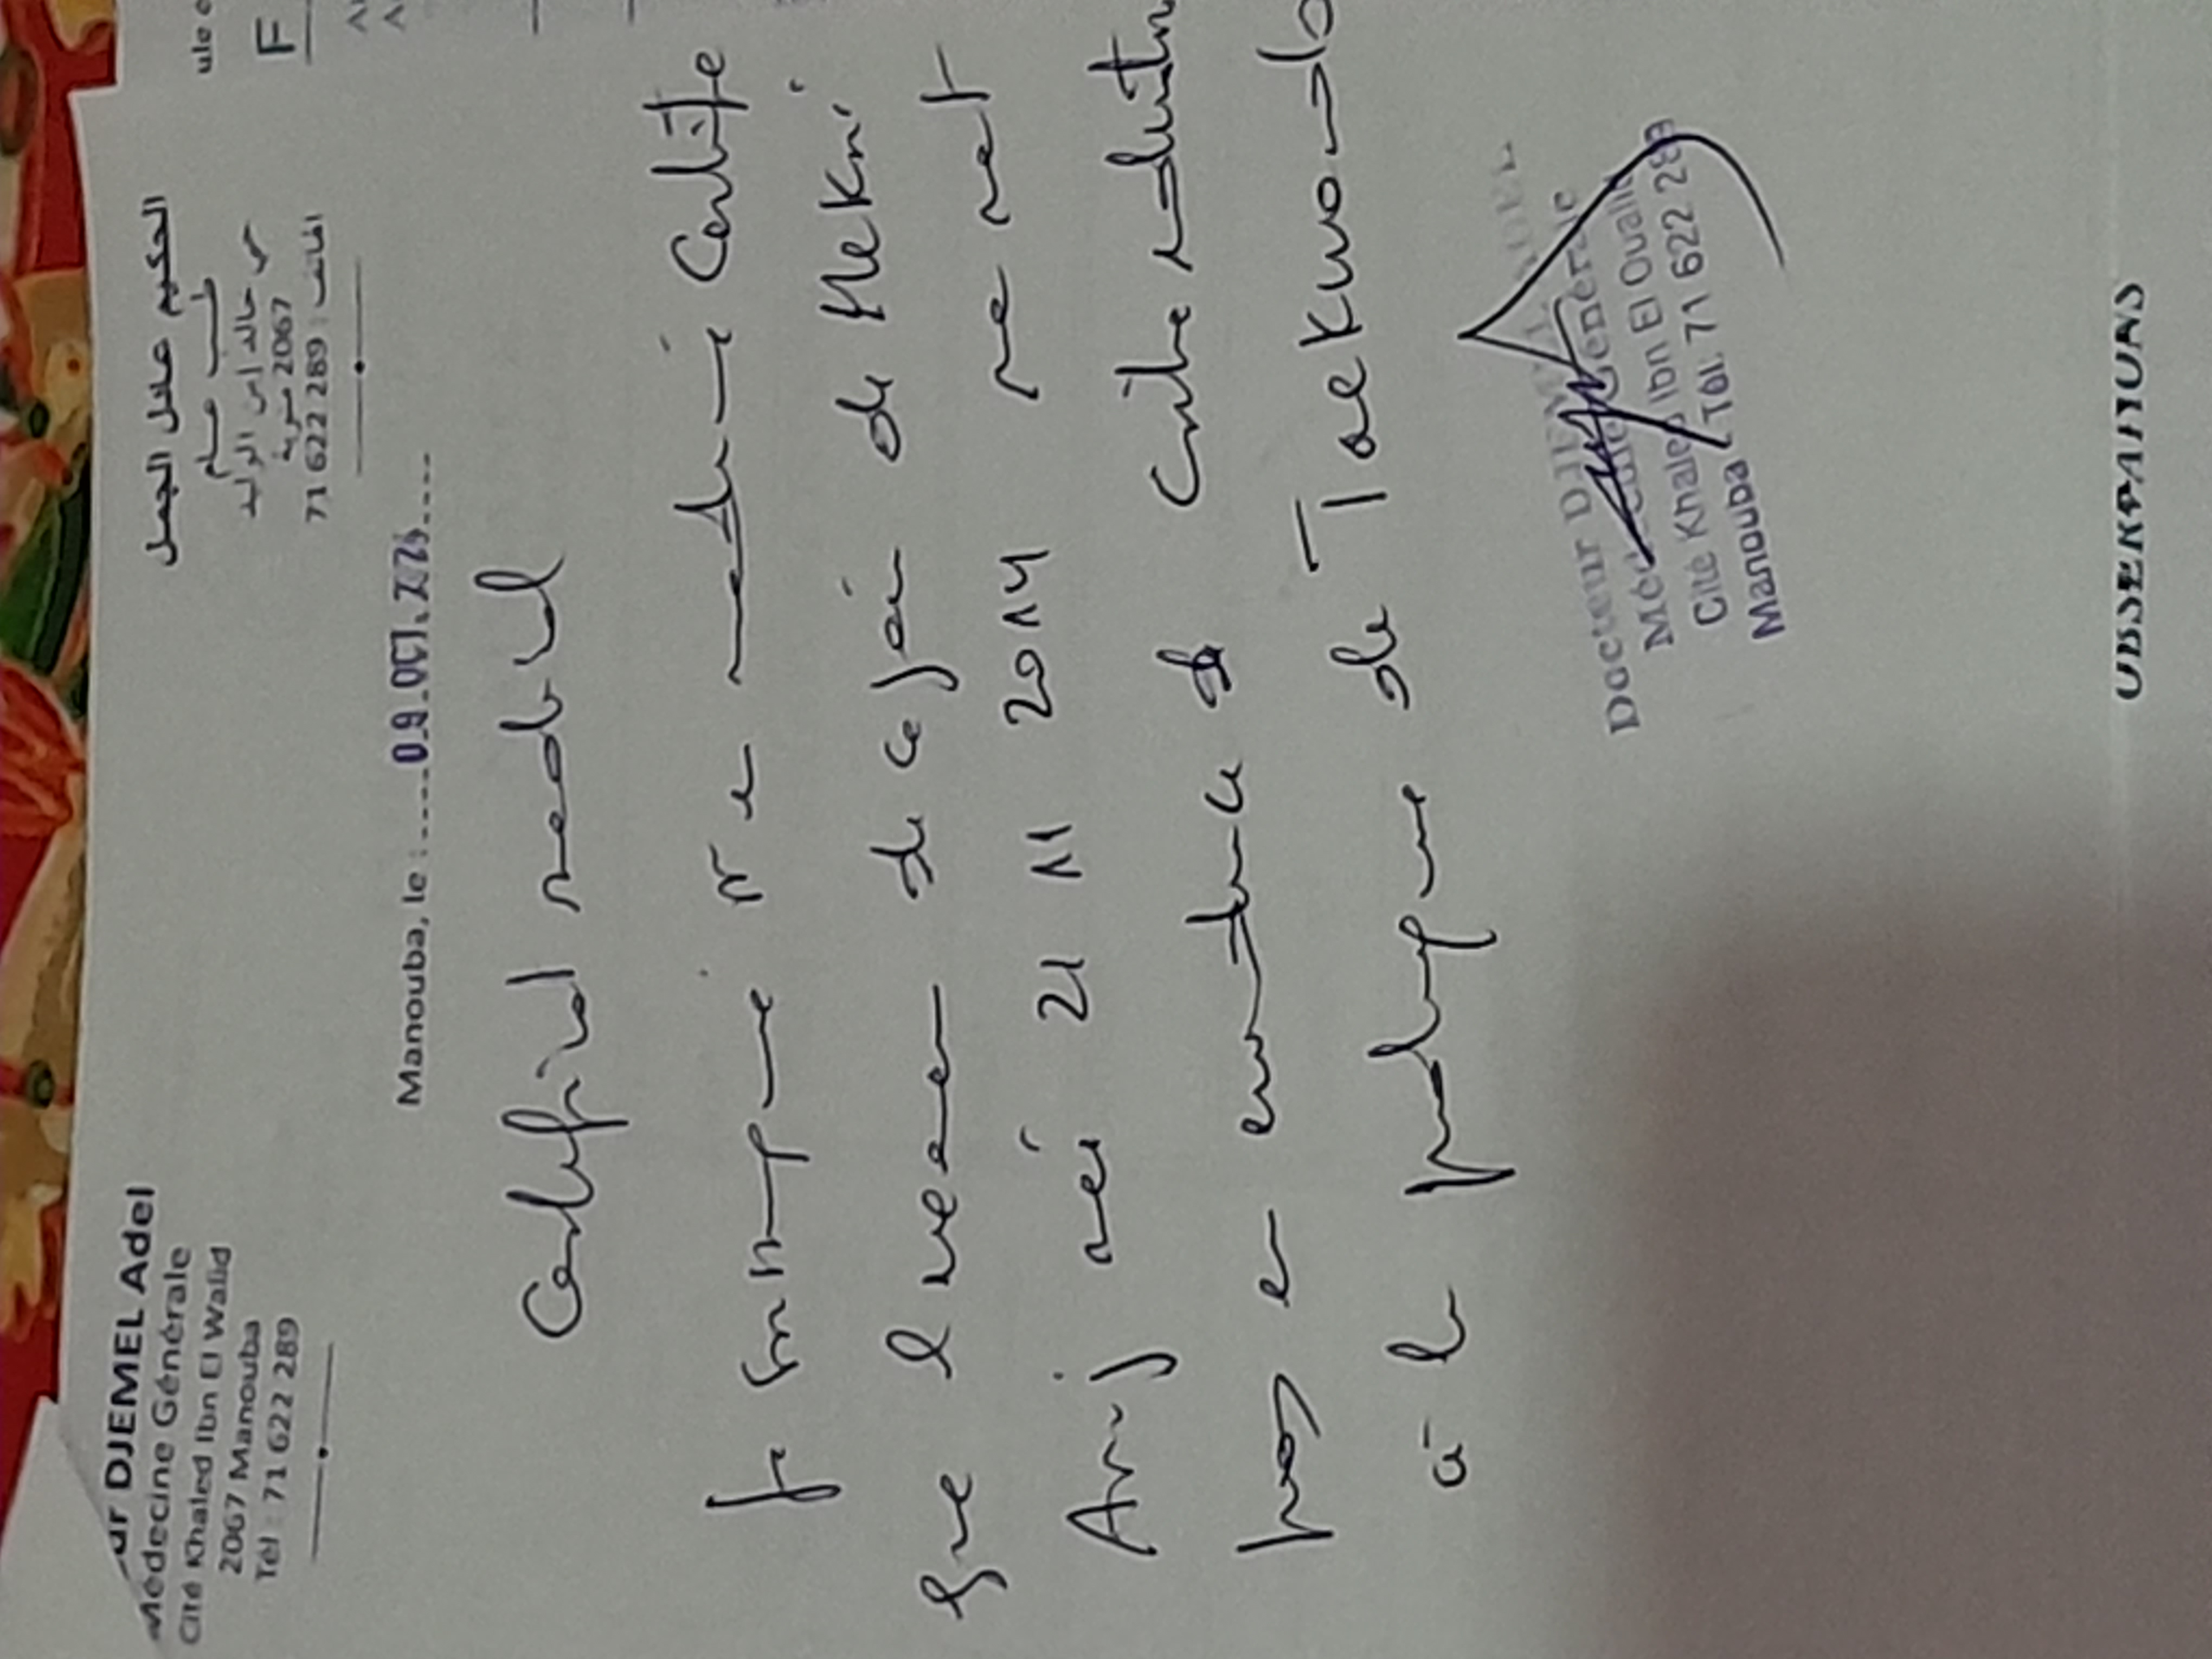 ur DJEMEL Adel
Médecine Générale
Cité Khaled Ibn El Walid
2067 Manouba
Tél : 71 622 289
الحكيم عادل الجمل
طب عام
حي خالد ابن الوليد
2067 منوبة
الهاتف : 71 622 289
Manouba, le : 09 OCT. 202
Certificat medical
Je soussigné Dr en medecine Certifie
que l'examen de ce jour de Mekni
Amj né 21 11 2014 ne met
pas en evidence de contre indication
à la pratique de Taekwondo
Docteur DJEMEL ADEL
Médecine Générale
Cité Khaled Ibn El Oualid
Manouba Tél. 71 622 289
ule
F
OBSERVATIONS